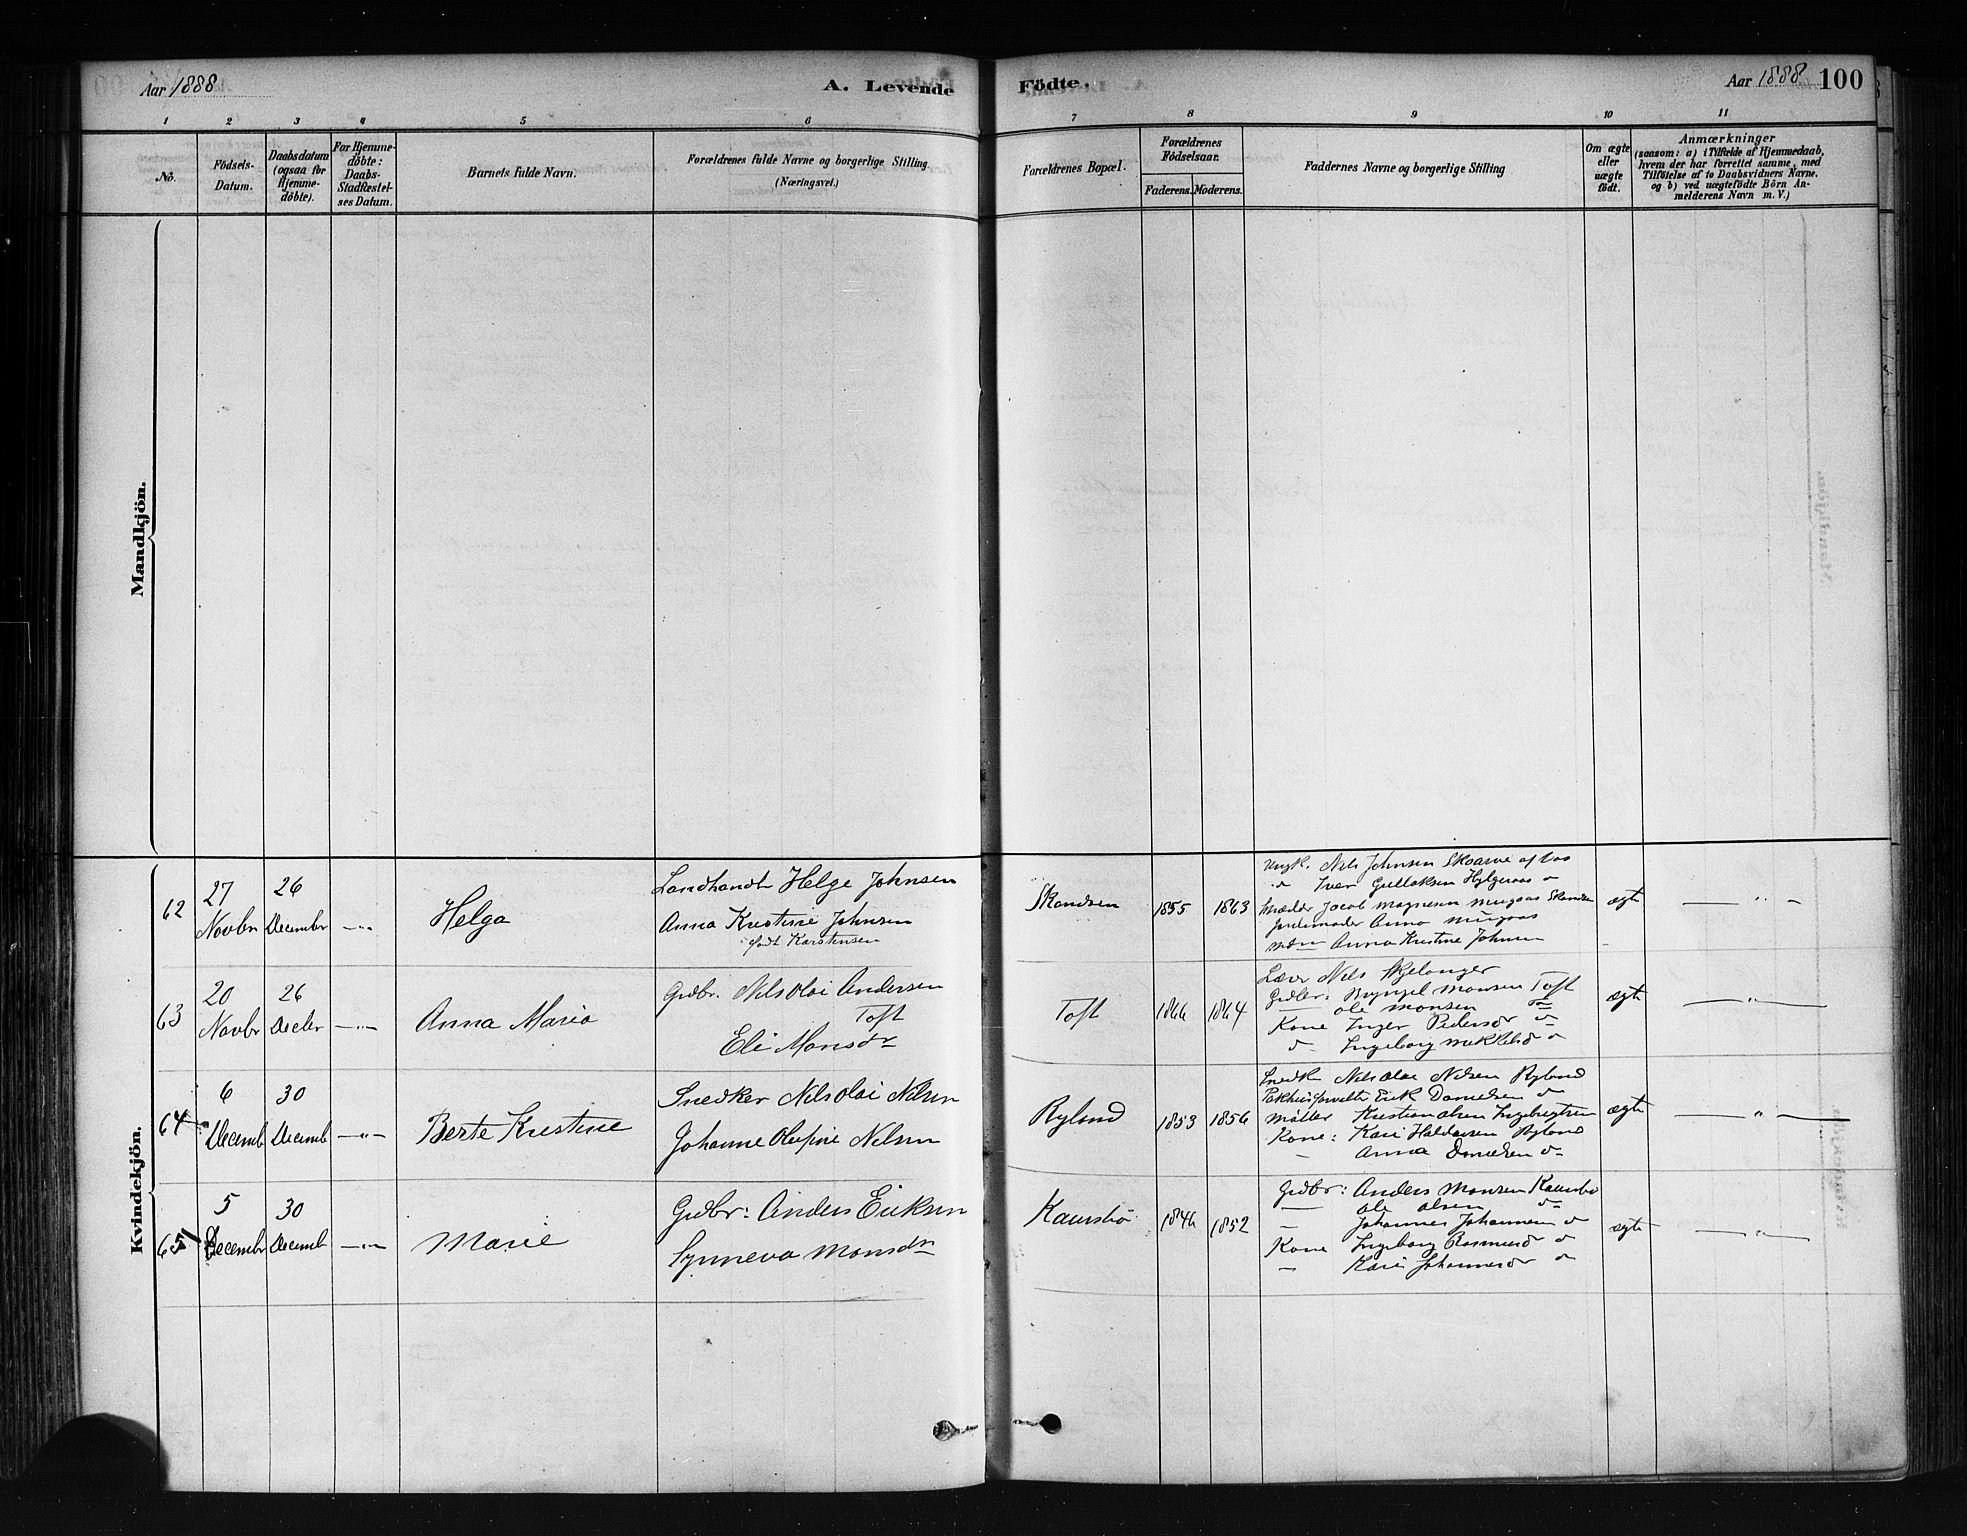 Aar 1888
A. Levende
Födte.
Aar 1888 100
1 2 3 4 5 6 7 8 9 10 11
No.
Födsels-
Datum.
Daabsdatum
(ogsaa for
Hjemme-
döbte).
For Hjemme-
döbte:
Daabs-
Stadfæstel-
ses Datum.
Barnets fulde Navn.
Forældrenes fulde Navne og borgerlige Stilling.
(Næringsvei.)
Forældrenes Bopæl.
Forældrenes
Födselsaar.
Faderens. Moderens.
Faddernes Navne og borgerlige Stilling
Om ægte
eller
uægte
födt.
Anmærkninger
(saasom: a) i Tilfælde af Hjemmedaab,
hvem der har forrettet samme, med
Tilföielse af to Daabsvidners Navne.
og b) ved uægtefödte Börn An-
melderens Navn m. V.)
Mandkjön.
Kvindekjön.
62
27
Novbr
26
December
—"—
Helga
Landhandl Helge Johnsen
Anna Kristine Johnsen
født Karstensen
Skandsen
1855
1863
Ungk. Nils Johnsen
d Iver Gullaksen
Jacob Magnesen
Jordemoder Anna
Anna Kristine Johnsen
ægte
— " —
63
20
Novbr
26
Decbr
—"—
Anna Maria
Grdbr. Nils Olai Andersen
Toft
Eli Monsdr
Toft
1866
1864
Lærer Nils Skjelanger
Grdbr: Brynjel Monsen Toft
— Ole Monsen d
Kone Inger Pedersdr d
d Ingeborg Mikkelsd d
ægte
— " —
64
6
Decemb
30
Decemb
—"—
Berte Kristine
Snedker Nils Olai Nilsen
Johanne Olufine Nilsen
Ryland
1853
1856
Snedk Nils Olai Nilsen Ryland
Erik Danielsen d
Møller
Kone: Kari Ryland
— Anna Danielsen d
ægte
— " —
65
5
Decembr
30
Decemb
—"—
Marie
Grdbr: Anders Eriksen
Synneva Monsdr
Kaursbø
1846
1852
Grdbr: Anders Monsen
— Ole Olsen d
— Johannes Johannesen d
Kone Ingeborg Rasmusd d
— Kari Johannesdr d
ægte
— " —